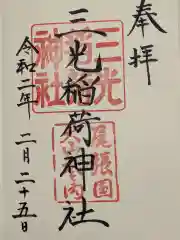 奉拝
三光稲荷神社
令和二年
二月二十五日
三光
稲荷
神社
尾張国